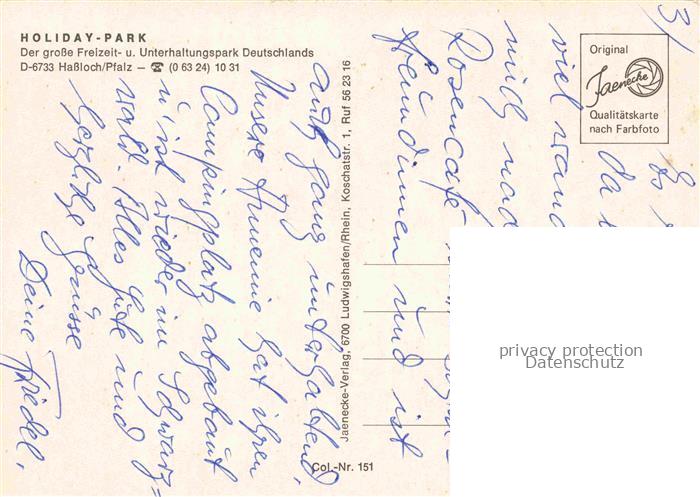 HOLIDAY-PARK
Der große Freizeit- u. Unterhaltungspark Deutschlands
D-6733 Haßloch/Pfalz – ☎ (0 63 24) 10 31
Original
Jaenecke
Qualitätskarte
nach Farbfoto
3)
Es
da
viel
mich
Rosencafé
Freundinnen und ist
auch ganz unterhaltend
Unsere Annemie hat ihren
Campingplatz abgebaut
u' ist wieder im Schwarz=
wald. Alles Gute und
herzliche Grüsse
Deine Friedel.
Jaenecke-Verlag, 6700 Ludwigshafen/Rhein, Koschatstr. 1, Ruf 56 23 16
Col.-Nr. 151
privacy protection
Datenschutz